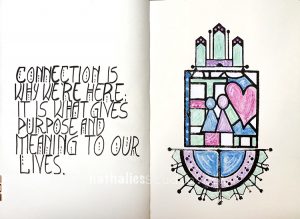 CONNECTION IS
WHY WE'RE HERE.
IT IS WHAT GIVES
PURPOSE AND
MEANING TO OUR
LIVES.